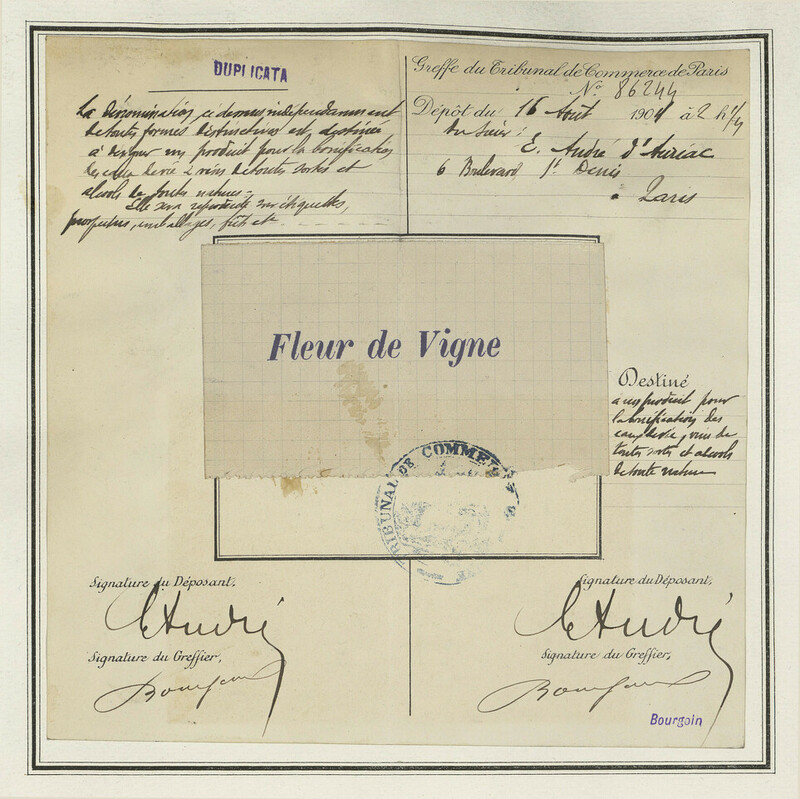 DUPLICATA
La dénomination ci dessus indépendamment
de toutes formes distinctives est destinée
à désigner un produit pour la bonification
des eaux de vie, vins de toutes sortes et
alcools de toutes natures.-
Elle sera reproduite sur étiquettes,
prospectus, emballages, fûts etc
Greffe du Tribunal de Commerce de Paris
No 86244
Dépôt du 16 Aout 1904 à 2 h
du sieur :
E. André d'Auriac
6 Boulevard St Denis
à Paris
Fleur de Vigne
Destiné
a un produit pour
la bonification des
eaux de vie, vins de
toutes sortes et alcools
de toute nature
TRIBUNAL DE COMMERCE
Signature du Déposant,
EAndré
Signature du Greffier,
Bourgoin
Signature du Déposant,
EAndré
Signature du Greffier,
Bourgoin
Bourgoin